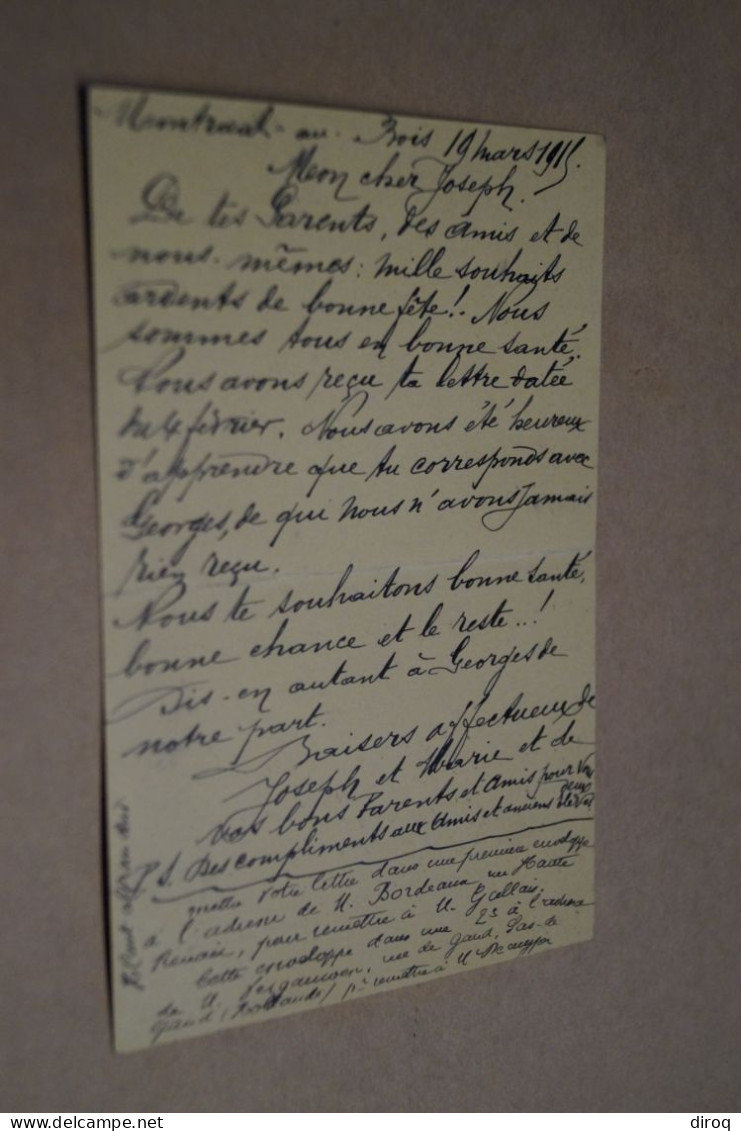 au Bois 19 mars 1915.
Mon cher Joseph.
De tes Parents, des amis et de
nous-mêmes: mille souhaits
ardents de bonne fête! Nous
sommes tous en bonne santé.
Nous avons reçu ta lettre datée
du 4 février. Nous avons été heureux
d'apprendre que tu corresponds avec
Georges, de qui nous n'avons jamais
rien reçu.
Nous te souhaitons bonne santé,
bonne chance et le reste...!
Dis-en autant à Georges de
notre part.
Baisers affectueux de
Joseph et Marie et de
vos bons Parents et Amis pour vous
deux
P.S. Des compliments aux Amis et anciens élèves
mettre votre lettre dans une première enveloppe
à l'adresse de M. Bordeaux, rue Haute
Renaix, pour remettre à M. Gallais.
Cette enveloppe dans une 2e à l'adresse
de M. rue de Gand, Sas-de-
Gand (Hollande) pr remettre à M.
diroq